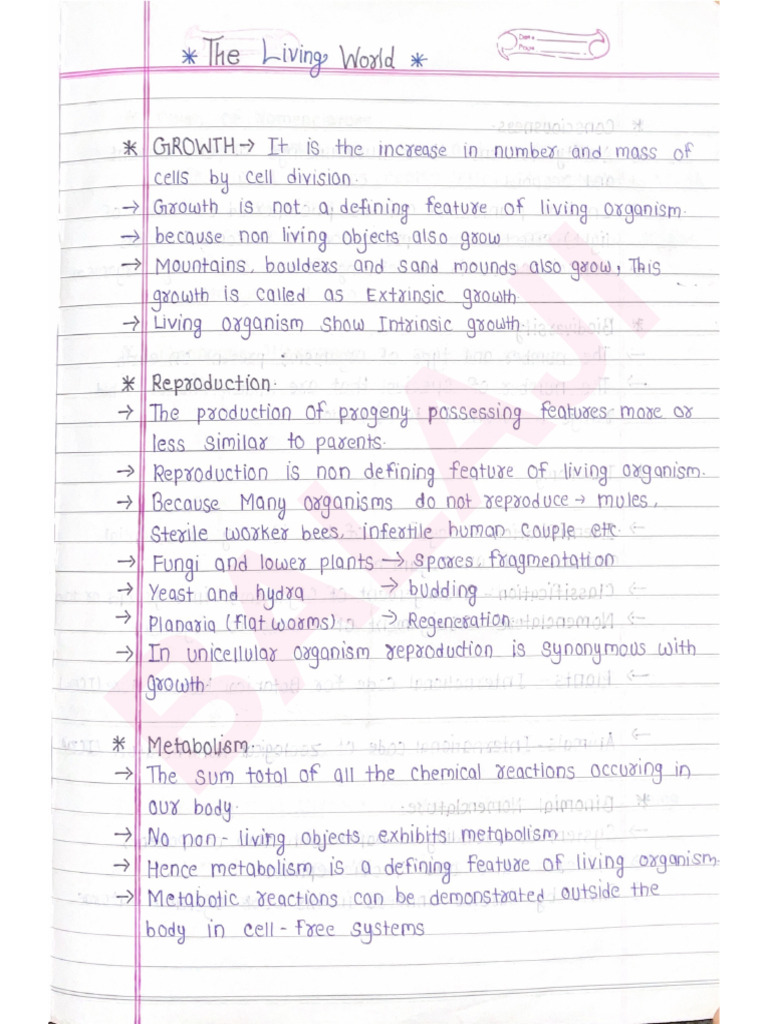 * The Living World *
Date
Page
* GROWTH → It is the increase in number and mass of
cells by cell division.
→ Growth is not a defining feature of living organism.
→ because non living objects also grow
→ Mountains, boulders and sand mounds also grow, This
growth is called as Extrinsic growth
→ Living organism show Intrinsic growth
* Reproduction.
→ The production of progeny possessing features more or
less similar to parents.
→ Reproduction is non defining feature of living organism.
→ Because Many organisms do not reproduce → mules,
Sterile worker bees, infertile human couple etc
→ Fungi and lower plants → Spores fragmentation
→ Yeast and hydra → budding
→ Planaria (flat worms) → Regeneration
→ In unicellular organism reproduction is synonymous with
growth.
* Metabolism.
→ The sum total of all the chemical reactions occuring in
our body.
→ No non-living objects exhibits metabolism
→ Hence metabolism is a defining feature of living organism
→ Metabotic reactions can be demonstrated outside the
body in cell-free systems
BALAJI